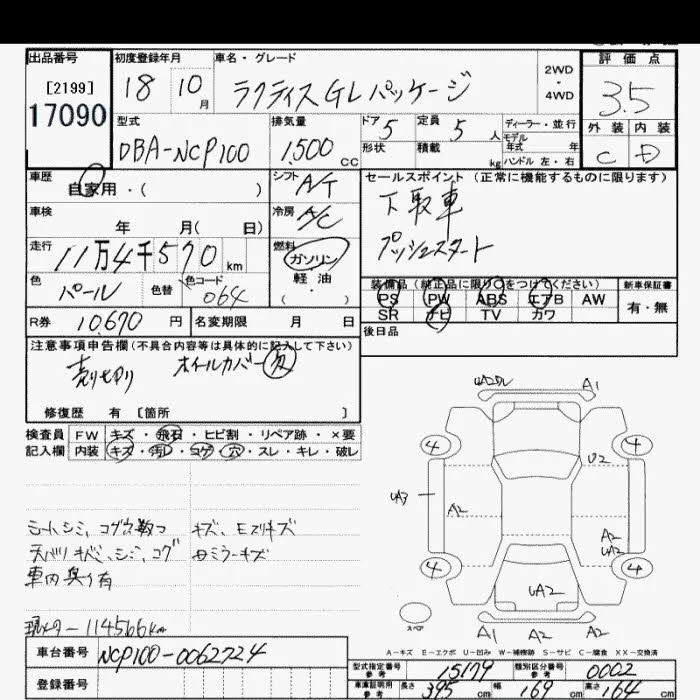 出品番号 初度登録年月 車名・グレード 評価点
[2199] 18 10月 ラクティス GL パッケージ 2WD・4WD 3.5
17090
型式 排気量 ドア 5 定員 5人 ディーラー・並行 外装 内装
DBA-NCP100 1,500cc 形状 積載 kg モデル年式 年 ハンドル 左・右 C D
車歴 自家用・( ) シフト A/T セールスポイント(正常に機能するものに限ります)
車検 年 月( 日) 冷房 A/C 下取車
走行 11万4千570km 燃料 ガソリン・軽油・( ) プッシュスタート
色 パール 色替 色コード 064 装備品(純正品に限り○をつけてください) 新車保証書
PS PW ABS エアB AW 有・無
R券 10,670円 名変期限 月 日 SR ナビ TV カワ
後日品
注意事項申告欄(不具合内容等は具体的に記入して下さい)
売り切り ホイールカバー
修復歴 有 [箇所 ]
検査員 FW キズ・飛石・ヒビ割・リペア跡・×要
記入欄 内装 キズ・汚レ・コゲ・穴・スレ・キレ・破レ
A1
4 4
U2
UA3 A2
A2
UA2
4 4
UA2
スペア
A1 A2 A2
シート、シミ、コゲ穴数ヶ キズ、Eズリキズ
天バリキズ、シミ、コゲ 母ミラーキズ
車内臭イ有
現メーター114566km
A-キズ E-エクボ U-凹み W-補修跡 S-サビ C-腐食 XX-交換済
車台番号 NCP100-0062724
型式指定番号参考 15179 類別区分番号参考 0002
登録番号
車庫証明用参考 長さ 395cm 幅 169cm 高さ 164cm